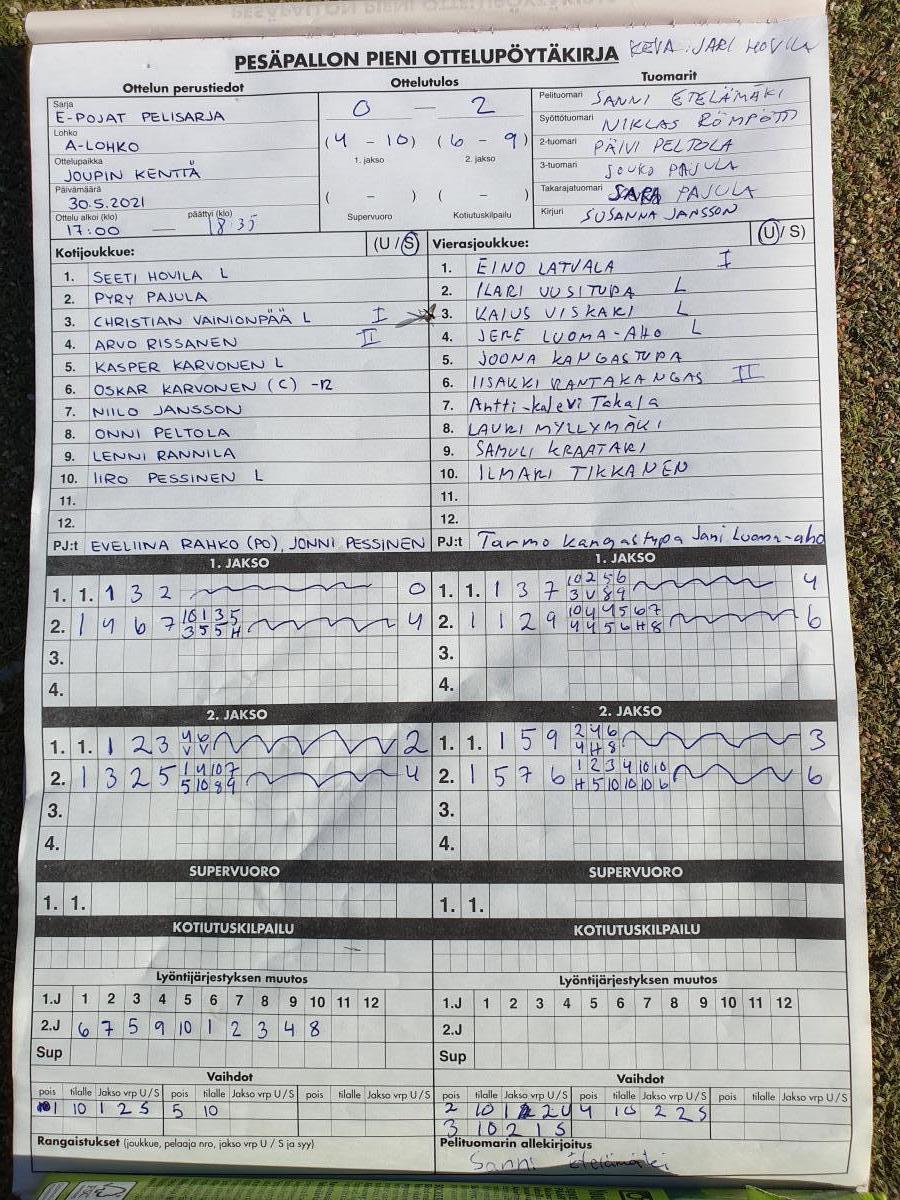 PESÄPALLON PIENI OTTELUPÖYTÄKIRJA KEVA: JARI HOVILA
Ottelun perustiedot
Sarja
E-POJAT PELISARJA
Lohko
A-LOHKO
Ottelupaikka
JOUPIN KENTTÄ
Päivämäärä
30.5.2021
Ottelu alkoi (klo) päättyi (klo)
17:00 — 18:35
Ottelutulos
0 — 2
(4 - 10) (6 - 9)
1. jakso 2. jakso
( - ) ( - )
Supervuoro Kotiutuskilpailu
Tuomarit
Pelituomari SANNI ETELÄMÄKI
Syöttötuomari NIKLAS RÖMPÖTTI
2-tuomari PÄIVI PELTOLA
3-tuomari JOUKO PAJULA
Takarajatuomari SARA PAJULA
Kirjuri SUSANNA JANSSON
Kotijoukkue: (U / S)
1. SEETI HOVILA L
2. PYRY PAJULA
3. CHRISTIAN VAINIONPÄÄ L I
4. ARVO RISSANEN II
5. KASPER KARVONEN L
6. OSKAR KARVONEN (C) -12
7. NIILO JANSSON
8. ONNI PELTOLA
9. LENNI RANNILA
10. IIRO PESSINEN L
11.
12.
PJ:t EVELIINA RAHKO (PO), JONNI PESSINEN
Vierasjoukkue: (U / S)
1. EINO LATVALA I
2. ILARI UUSITUPA L
3. KAIUS VISKARI L
4. JERE LUOMA-AHO L
5. JOONA KANGASTUPA
6. IISAKKI RANTAKANGAS II
7. Antti-kalevi Takala
8. LAURI MYLLYMÄKI
9. SAMULI KRAATARI
10. ILMARI TIKKANEN
11.
12.
PJ:t Tarmo kangastupa Jani Luoma-aho
1. JAKSO
1. 1. 1 3 2 0
2. 1 4 6 7 10 1 3 5 4
3 5 5 H
3.
4.
1. JAKSO
1. 1. 1 3 7 10 2 5 6 4
3 V 8 9
2. 1 1 2 9 10 4 4 5 6 7 6
4 4 5 6 H 8
3.
4.
2. JAKSO
1. 1. 1 2 3 4 6 2
V V
2. 1 3 2 5 1 4 10 7 4
5 10 8 9
3.
4.
2. JAKSO
1. 1. 1 5 9 2 4 6 3
4 H 8
2. 1 5 7 6 1 2 3 4 10 10 6
H 5 10 10 10 6
3.
4.
SUPERVUORO
1. 1.
SUPERVUORO
1. 1.
KOTIUTUSKILPAILU
KOTIUTUSKILPAILU
Lyöntijärjestyksen muutos
1.J 1 2 3 4 5 6 7 8 9 10 11 12
2.J 6 7 5 9 10 1 2 3 4 8
Sup
Lyöntijärjestyksen muutos
1.J 1 2 3 4 5 6 7 8 9 10 11 12
2.J
Sup
Vaihdot
pois tilalle Jakso vrp U / S pois tilalle Jakso vrp U / S pois tilalle Jakso vrp U / S
1 10 1 2 S 5 10
Vaihdot
pois tilalle Jakso vrp U / S pois tilalle Jakso vrp U / S pois tilalle Jakso vrp U / S
2 10 1 2 U 4 10 2 2 S
3 10 2 1 S
Rangaistukset (joukkue, pelaaja nro, jakso vrp U / S ja syy)
Pelituomarin allekirjoitus
Sanni Etelämäki